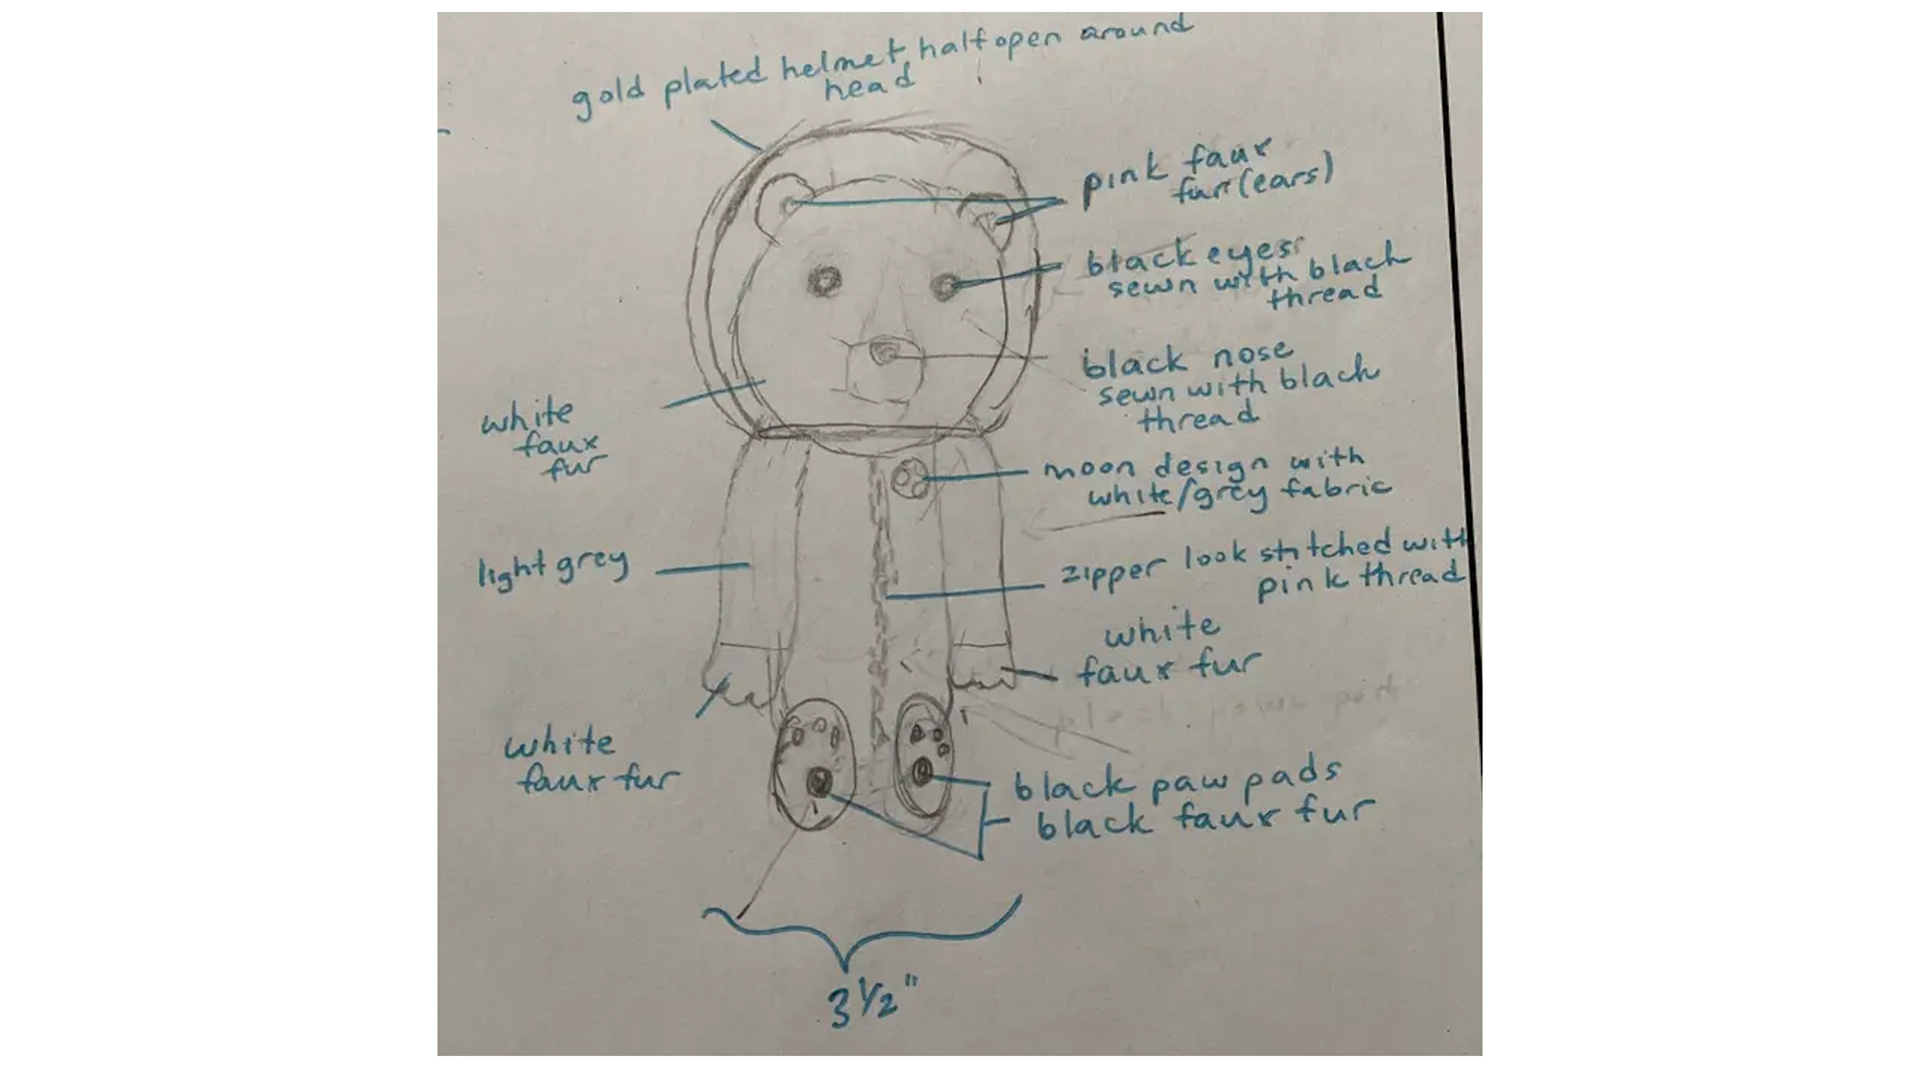 gold plated helmet, half open around
head
pink faux
fur (ears)
black eyes
sewn with black
thread
black nose
sewn with black
thread
white
faux
fur
moon design with
white/grey fabric
light grey
zipper look stitched with
pink thread
white
faux fur
white
faux fur
black paw pads
black faux fur
3 1/2"